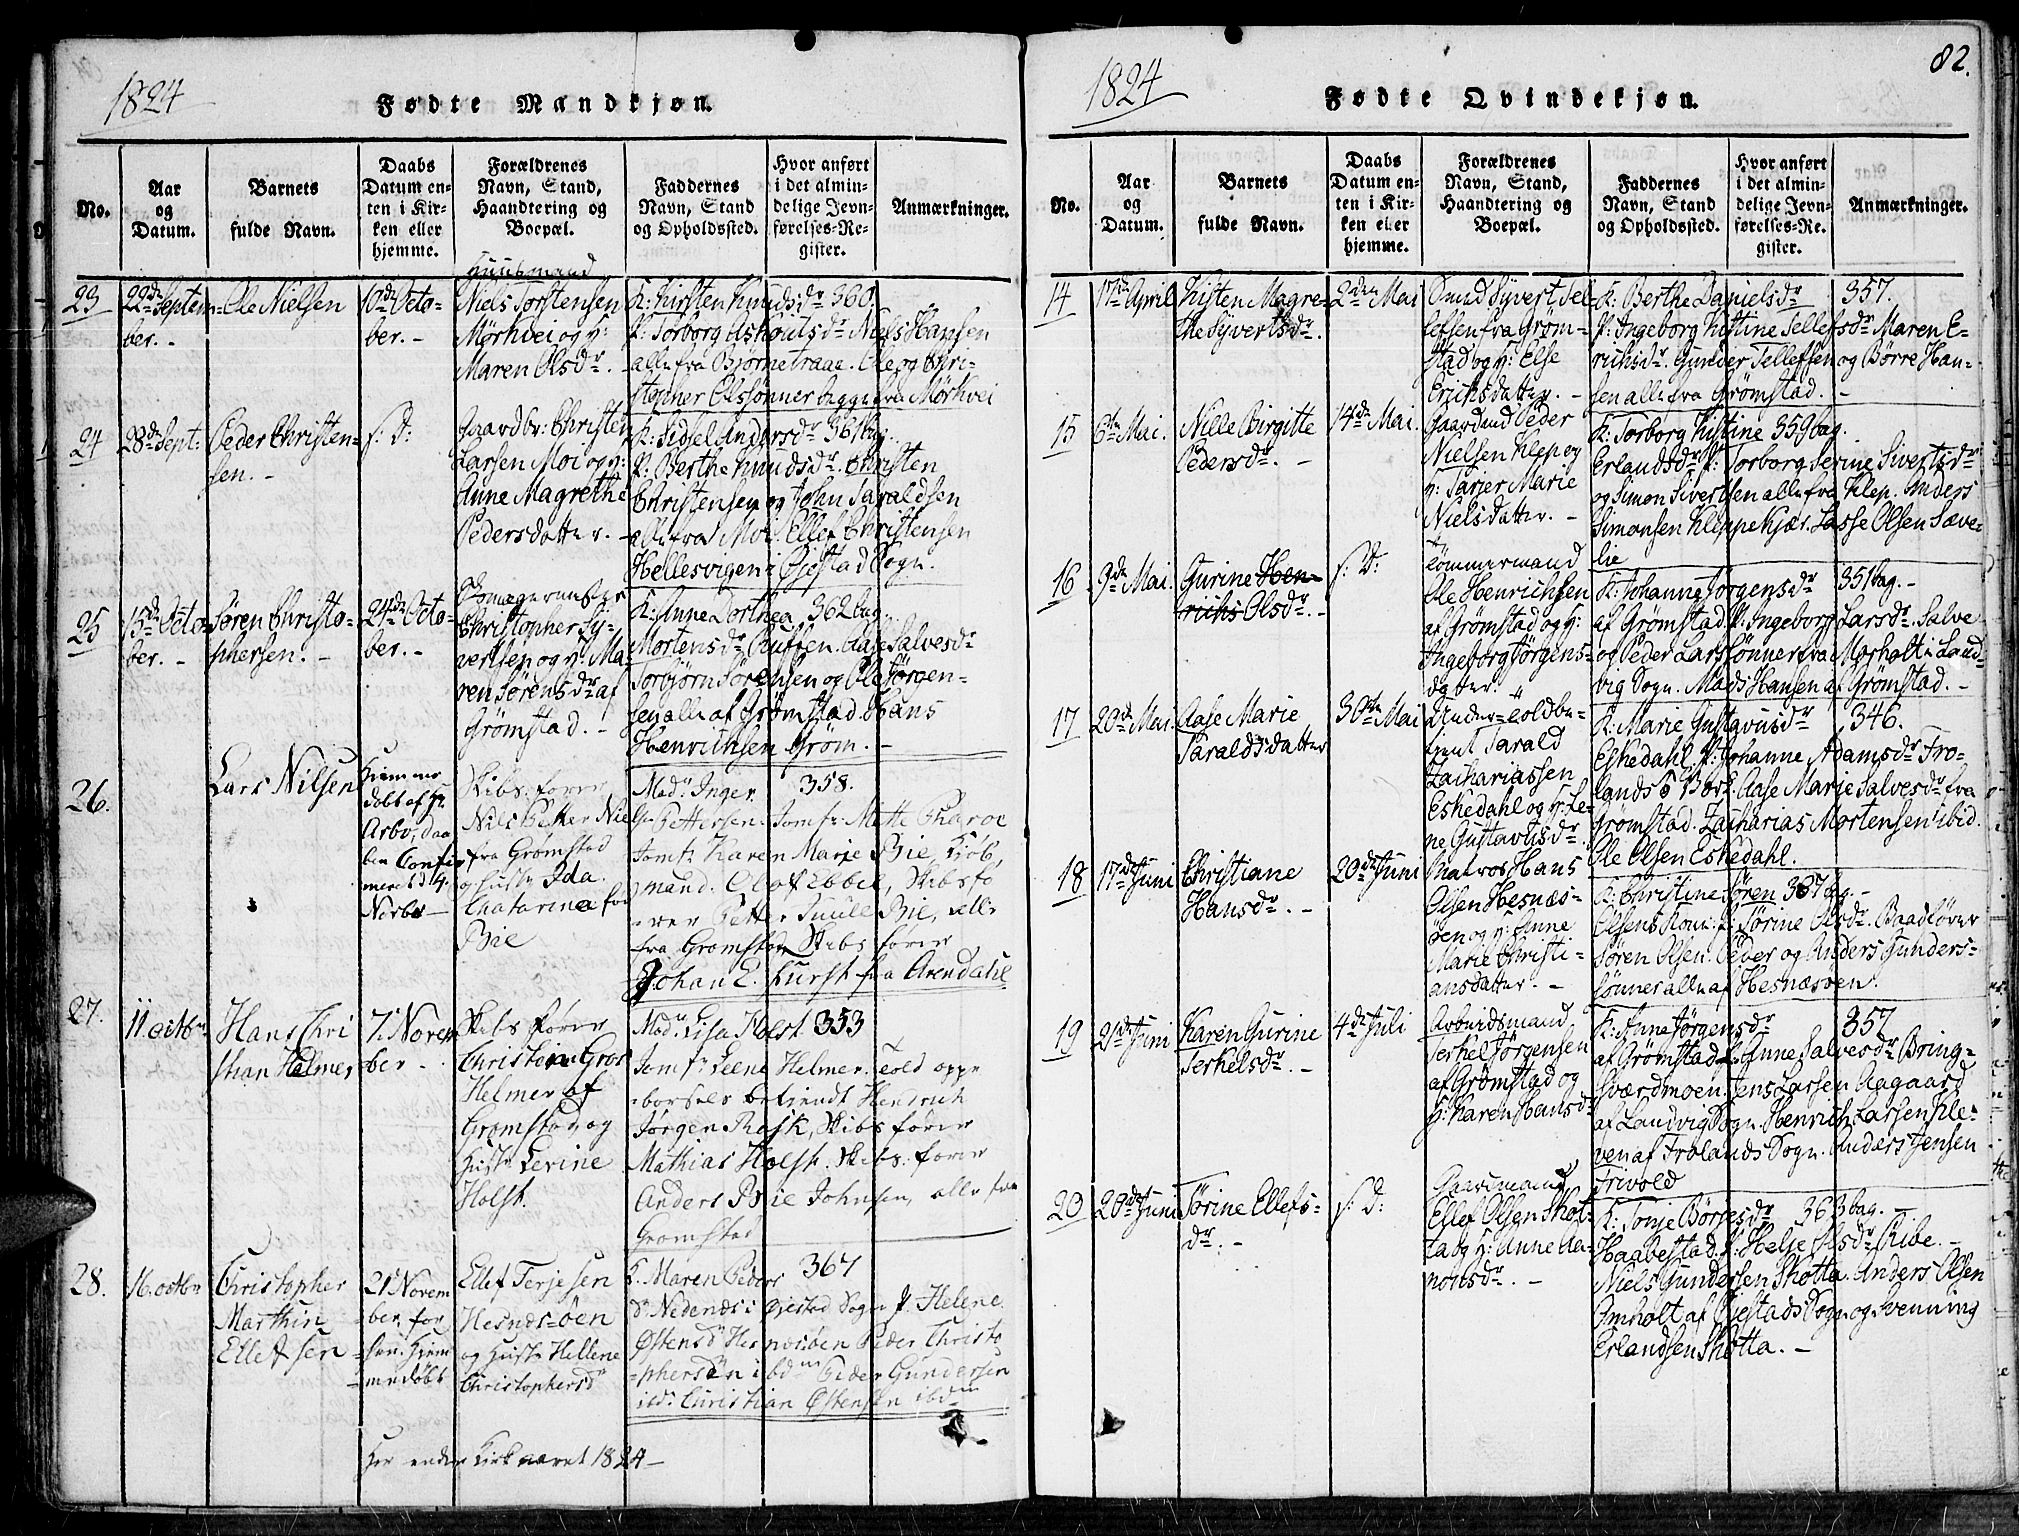 1824
Fødte Mandkjøn.
No.
Aar
og
Datum.
Barnets
fulde Navn.
Daabs
Datum en-
ten i Kir-
ken eller
hjemme.
Forældrenes
Navn, Stand,
Haandtering og
Boepæl.
Faddernes
Navn, Stand
og Opholdssted.
Hvor anført
i det almin-
delige Jevn-
førelses-Re-
gister.
Anmærkninger.
23
22de Septem-
ber. -
Ole Nielsen
10de Octo-
ber. -
Huusmand
Niels Torstensen
Mörkvei og H:
Maren Olsdr. -
K: Kirsten Knudsdr 360.
P: Torborg Aslroutsdr Niels Hansen
alle fra Bjørnetraae. Ole og Chri-
stopher Olssønner begge fra Mörkvei
24
28de Sept:
Peder Christen-
sen. -
s: D:
Gaardbr: Christen
Larsen Moi og H:
Anne Magrethe
Pedersdatter. -
K: Sidsel Andersdr 361 bag.
P: Berthe Knudsdr. Christen
Christensen og Johan Taraldsen
alle fra Moi. Ellef Christensen
Hellesvigen i Øjestad Sogn.
25
15de Octo-
ber. -
Søren Christo-
phersen. -
24de Octo-
ber. -
Christopher Sy-
vertsen og H: Ma-
ren Sörensdr af
Grømstad. -
K: Anne Dorthea 362 bag.
Mortensdr Ruften. Aase Salvesdr
Torbjørn Sørensen og Ole Jørgen-
sen alle af Grømstad. Hans
Henrichsen Grøm. -
26.
Lars Nilsen
Hiemme
døbt af Hr
Arbo, daa
ben Confir
meret d 4.
Novbr -
Skibsfører
Nils Petter Nie
fra Grømstad
og Hustr Ida
Catarina fød
Bie
Madm Inger 358.
G. Pettersen. Jomfr Mette Pharoe
Jomfr Karen Marie Bie, Kjøb
mand. Olof Ebbel, Skibsfø
rer Petter Juule Bie, alle
fra Gromstad Skibsfører
Johan E. Kursk fra Arendahl
27.
11. octbr
Hans Chri
stian Helmer
7. Novem
ber -
Skibsfører
Christian Gros
Helmer af
Gromstad og
Hustr Levine
Holst.
Madm Lisa Holst 353
Jomfr Leene Helmer. told oppe
børsels betjendt Hendrich
Jørgen Rosk, Skibsfører
Mathias Holst. Skibsfører
Anders Bie Johnsen, alle fra
Gromstad
28.
16. octbr
Christopher
Marthin
Ellefsen
21 Novem
ber for
hen. Hjem
me døbt
Ellef Terjesen
Hesnæs=öen
og Hustr Hellene
Christophersd
K. Maren Peders 367
dr Nedenæs i Øiestad Sogn J. Helene
Østensd Hesnæsøen Peder Christo
phersøn ibdm Peder Gundersen
ibd: Christian Østensen ibdm
Her ender Kirkeaaret 1824 -
1824
82.
Fødte Qvindekjøn.
No.
Aar
og
Datum.
Barnets
fulde Navn.
Daabs
Datum en-
ten i Kir-
ken eller
hjemme.
Forældrenes
Navn, Stand,
Haandtering og
Boepæl.
Faddernes
Navn, Stand
og Opholdssted.
Hvor anført
i det almin-
delige Jevn-
førelses-Re-
gister.
Anmærkninger.
14
17de April
Kisten Magre-
the Syvertsdr.
2den Mai
Smed Syvert Tel-
lefsen fra Grøm-
stad og H: Else
Erichsdatter. -
K: Berthe Danielsdr 357.
P: Ingeborg Kistine Tellefsdr Maren E-
richsdr. Gunder Tellefsen og Børre Han-
sen alle fra Grømstad. -
15
6te Mai.
Nille Birgitte
Pedersdr. -
14de Mai.
Gaardmd Peder
Nielsen Klep og
H: Tarjer Marie
Nielsdatter. -
K: Torborg Kistine 359 bag.
Erlandsdr P: Torborg Serine Sivertsdr
og Simon Sivertsen alle fra Klep. Anders
Simonsen Kleppekjær. Lasse Olsen Sæve-
lie
16
9de Mai.
Gurine Hen-
richs Olsdr. -
s: D:
Tömmermand
Ole Henrichsen
af Grømstad og H:
Ingeborg Jörgens-
datter.
K: Johanne Jörgensdr 351 bag. -
af Grømstad. P: Ingeborg Larsdr. Salve
og Peder Larssønner fra Morholt i Land-
vig Sogn. Mads Hansen af Grømstad. -
17
20de Mai.
Aase Marie
Taraldsdatter
30te Mai
Under-toldbe-
tjent Tarald
Zachariassen
Eskedahl og H: Le-
ne Gustavusdr.
K: Marie Gustavusdr 346.
Eskedahl P: Johanne Adamsdr Fro-
lands Værk. Aase Marie Salvesdr fra
Grømstad. Zacharias Mortensen ibid.
Ole Olsen Eskedahl.
18
17de Juni
Christiane
Hansdr. -
20de Juni
Matros Hans
Olsen Hesnæs-
öen og H: Anne
Marie Christi-
ansdatter. -
K: Christine Søren 367 bag. -
Olsens Kone. P: Sørine Olsdr. Baadfører
Søren Olsen. Peder og Anders Gunders-
sønner alle af Hesnæsöen.
19
21de Juni
Karen Gurine
Terkelsdr. -
4de Juli
Arbeidsmand
Terkel Jørgensen
af Grømstad og
H: Karen Hansdr
K: Anne Jørgensdr 357
af Grømstad P: Anne Salvesdr Bring-
sværdmoen. Jens Larsen Aagaard
af Landvig Sogn. Henrich Larssen Kle-
ven af Frolands Sogn. Anders Jensen
Frivold
20
20de Juni
Tørine Ellefs-
dr. -
s: D:
Gaardmand
Ellef Olsen Skot-
ta og H: Anne Aa-
nonsdr. -
K: Tonje Børjesdr 363 bag. -
Haabestad. P: Helje Olsdr Ribe. -
Niels Gundersen Skotta. Anders Olsen
Omholt af Øjestads Sogn og Svenning
Erlandsen Skotta. -